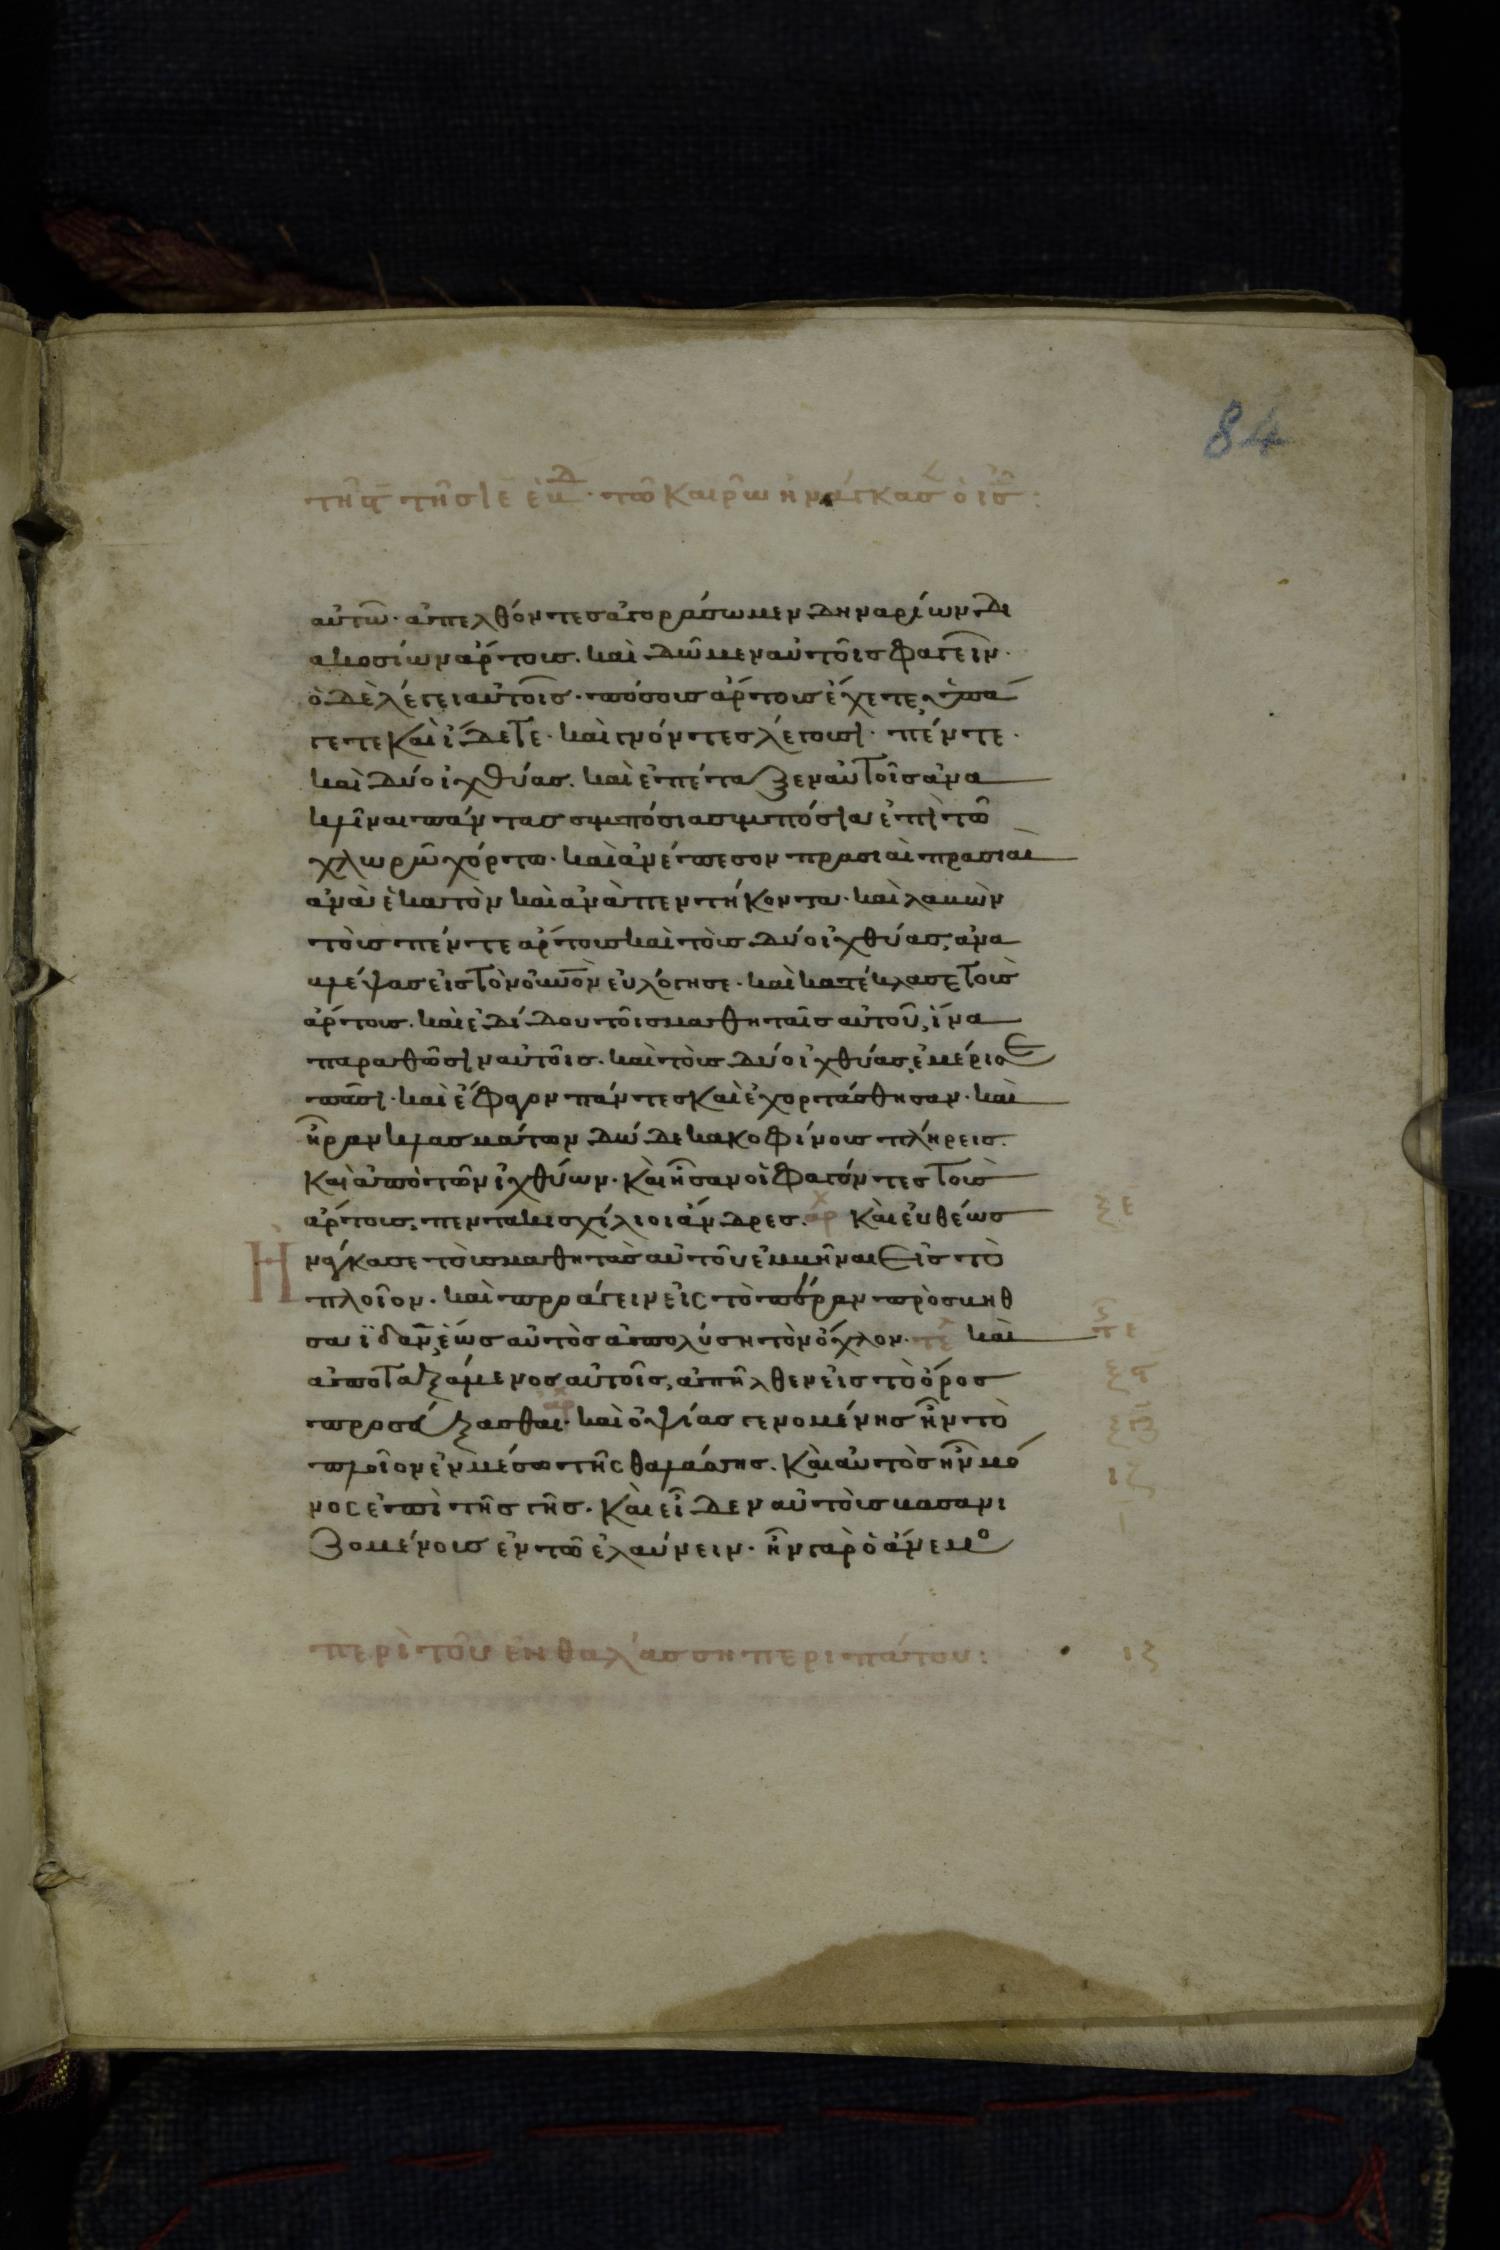 84
τῆ ϛ τῆς ιε ἑβδ· τῶ καιρῶ ἠνάγκασ ὁ ις:
αὐτῶ· ἀπελθόντες ἀγοράσωμεν δηναρίων δι
ακοσίων ἄρτους. καὶ δῶμεν αὐτοῖς φαγεῖν·
ὁ δὲ λέγει αὐτοῖς· πόσους ἄρτους ἔχετε, ὑπά
γετε καὶ ἴδετε· καὶ γνόντες λέγουσι· πέντε·
καὶ δύο ἰχθύας. καὶ ἐπέταξεν αὐτοῖς ἀνα
κλῖναι πάντας συμπόσια συμπόσια ἐπὶ τῶ
χλωρῶ χόρτω· καὶ ἀνέπεσον πρασιαὶ πρασιαὶ
ἀνὰ ἑκατὸν καὶ ἀνὰ πεντήκοντα· καὶ λαβὼν
τοὺς πέντε ἄρτους καὶ τοὺς δύο ἰχθύας, ἀνα
βλέψας εἰς τὸν οὐνον εὐλόγησε· καὶ κατέκλασε τοὺς
ἄρτους. καὶ ἐδίδου τοῖς μαθηταῖς αὐτοῦ, ἵνα
παραθῶσιν αὐτοῖς. καὶ τοὺς δύο ἰχθύας ἐμέρισε
πᾶσι· καὶ ἔφαγον πάντες καὶ ἐχορτάσθησαν· καὶ
ἦραν κλασμάτων δώδεκα κοφίνους πλήρεις.
καὶ ἀπὸ τῶν ἰχθύων· καὶ ἦσαν οἱ φαγόντες τοὺς
ἄρτους, πεντακισχίλιοι ἄνδρες. αρχ καὶ εὐθέως ξε
Ἠνάγκασε τοὺς μαθητὰς αὐτοῦ ἐμβῆναι εἰς τὸ
πλοῖον· καὶ προάγειν εἰς τὸ πέραν πρὸς βηθ
σαϊδαν, ἕως αὐτὸς ἀπολύση τὸν ὄχλον· τε καὶ
ἀποταξάμενος αὐτοῖς, ἀπῆλθεν εἰς τὸ ὄρος ξϛ
προσεύξασθαι· αρχ καὶ ὀψίας γενομένης ἦν τὸ ξζ
πλοῖον ἐν μέσω τῆς θαλάσσης. καὶ αὐτὸς ἦν μό ιζ
νος ἐπὶ τῆς γῆς. καὶ εἶδεν αὐτοὺς βασανι
ζομένους ἐν τῶ ἐλαύνειν· ἦν γὰρ ὁ ἄνεμο
περὶ τοῦ ἐν θαλάσση περιπάτου: ιζ